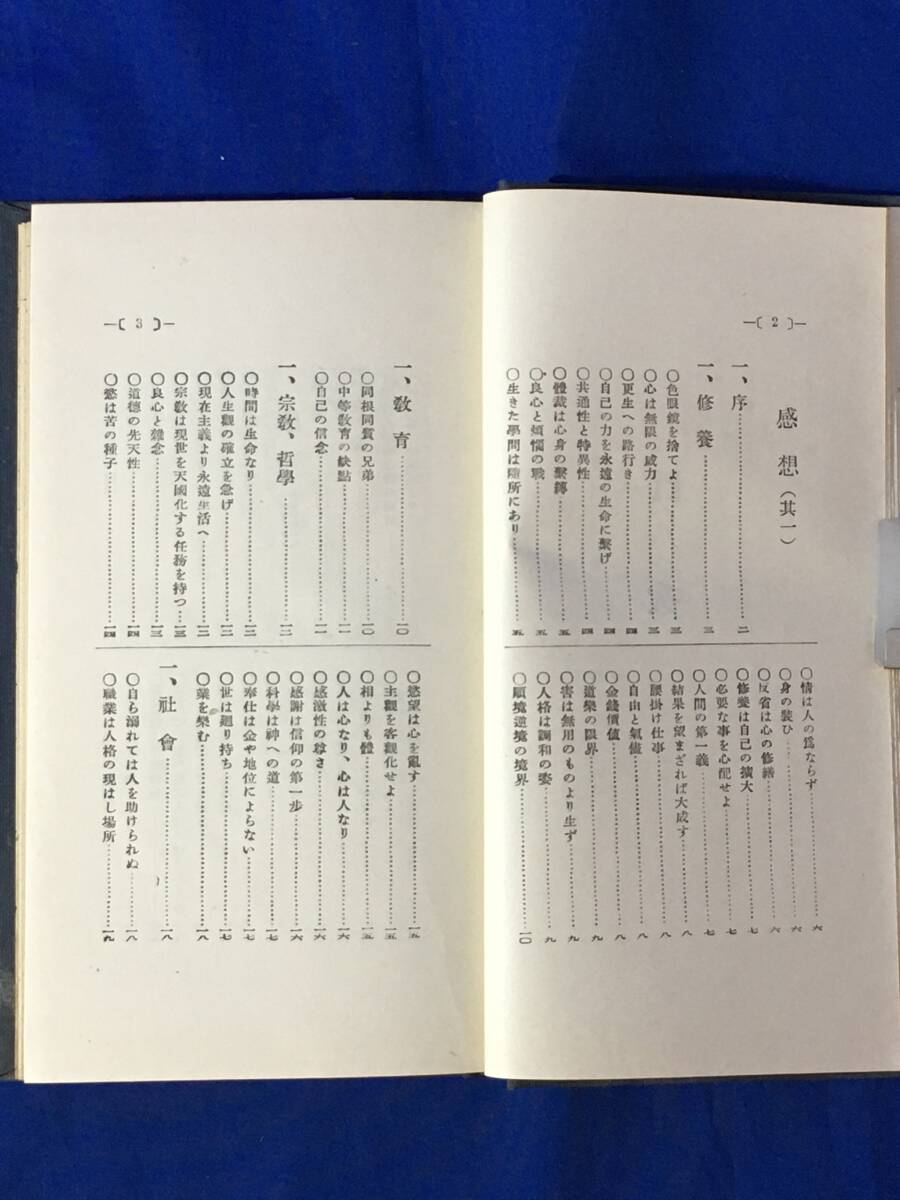 —〔 2 〕—
感想（其一）
一、序……………二
一、修養……………三
〇色眼鏡を捨てよ……………三
〇心は無限の威力……………三
〇更生への路行き……………四
〇自己の力を永遠の生命に繋げ……………四
〇共通性と特異性……………四
〇體裁は心身の繋縛……………五
〇良心と煩惱の戰……………五
〇生きた學問は隨所にあり……………五
〇情は人の爲ならず……………六
〇身の裝ひ……………六
〇反省は心の修繕……………六
〇修養は自己の擴大……………七
〇必要な事を心配せよ……………七
〇人間の第一義……………七
〇結果を望まざれば大成す……………八
〇腰掛け仕事……………八
〇自由と氣儘……………八
〇金錢價値……………八
〇道樂の限界……………九
〇害は無用のものより生ず……………九
〇人格は調和の姿……………九
〇順境逆境の境界……………一〇
—〔 3 〕—
一、敎育……………一〇
〇同根同質の兄弟……………一〇
〇中等敎育の缺點……………一一
〇自己の信念……………一一
一、宗敎、哲學……………一二
〇時間は生命なり……………一二
〇人生觀の確立を急げ……………一二
〇現在主義より永遠生活へ……………一二
〇宗敎は現世を天國化する任務を持つ……………一三
〇良心と雜念……………一三
〇道德の先天性……………一四
〇慾は苦の種子……………一四
〇慾望は心を亂す……………一五
〇主觀を客觀化せよ……………一五
〇相よりも體……………一五
〇人は心なり、心は人なり……………一六
〇感激性の尊さ……………一六
〇感謝は信仰の第一步……………一六
〇科學は神への道……………一七
〇奉仕は金や地位によらない……………一七
〇世は廻り持ち……………一七
〇業を樂む……………一八
一、社會……………一八
〇自ら溺れては人を助けられぬ……………一八
〇職業は人格の現はし場所……………一九